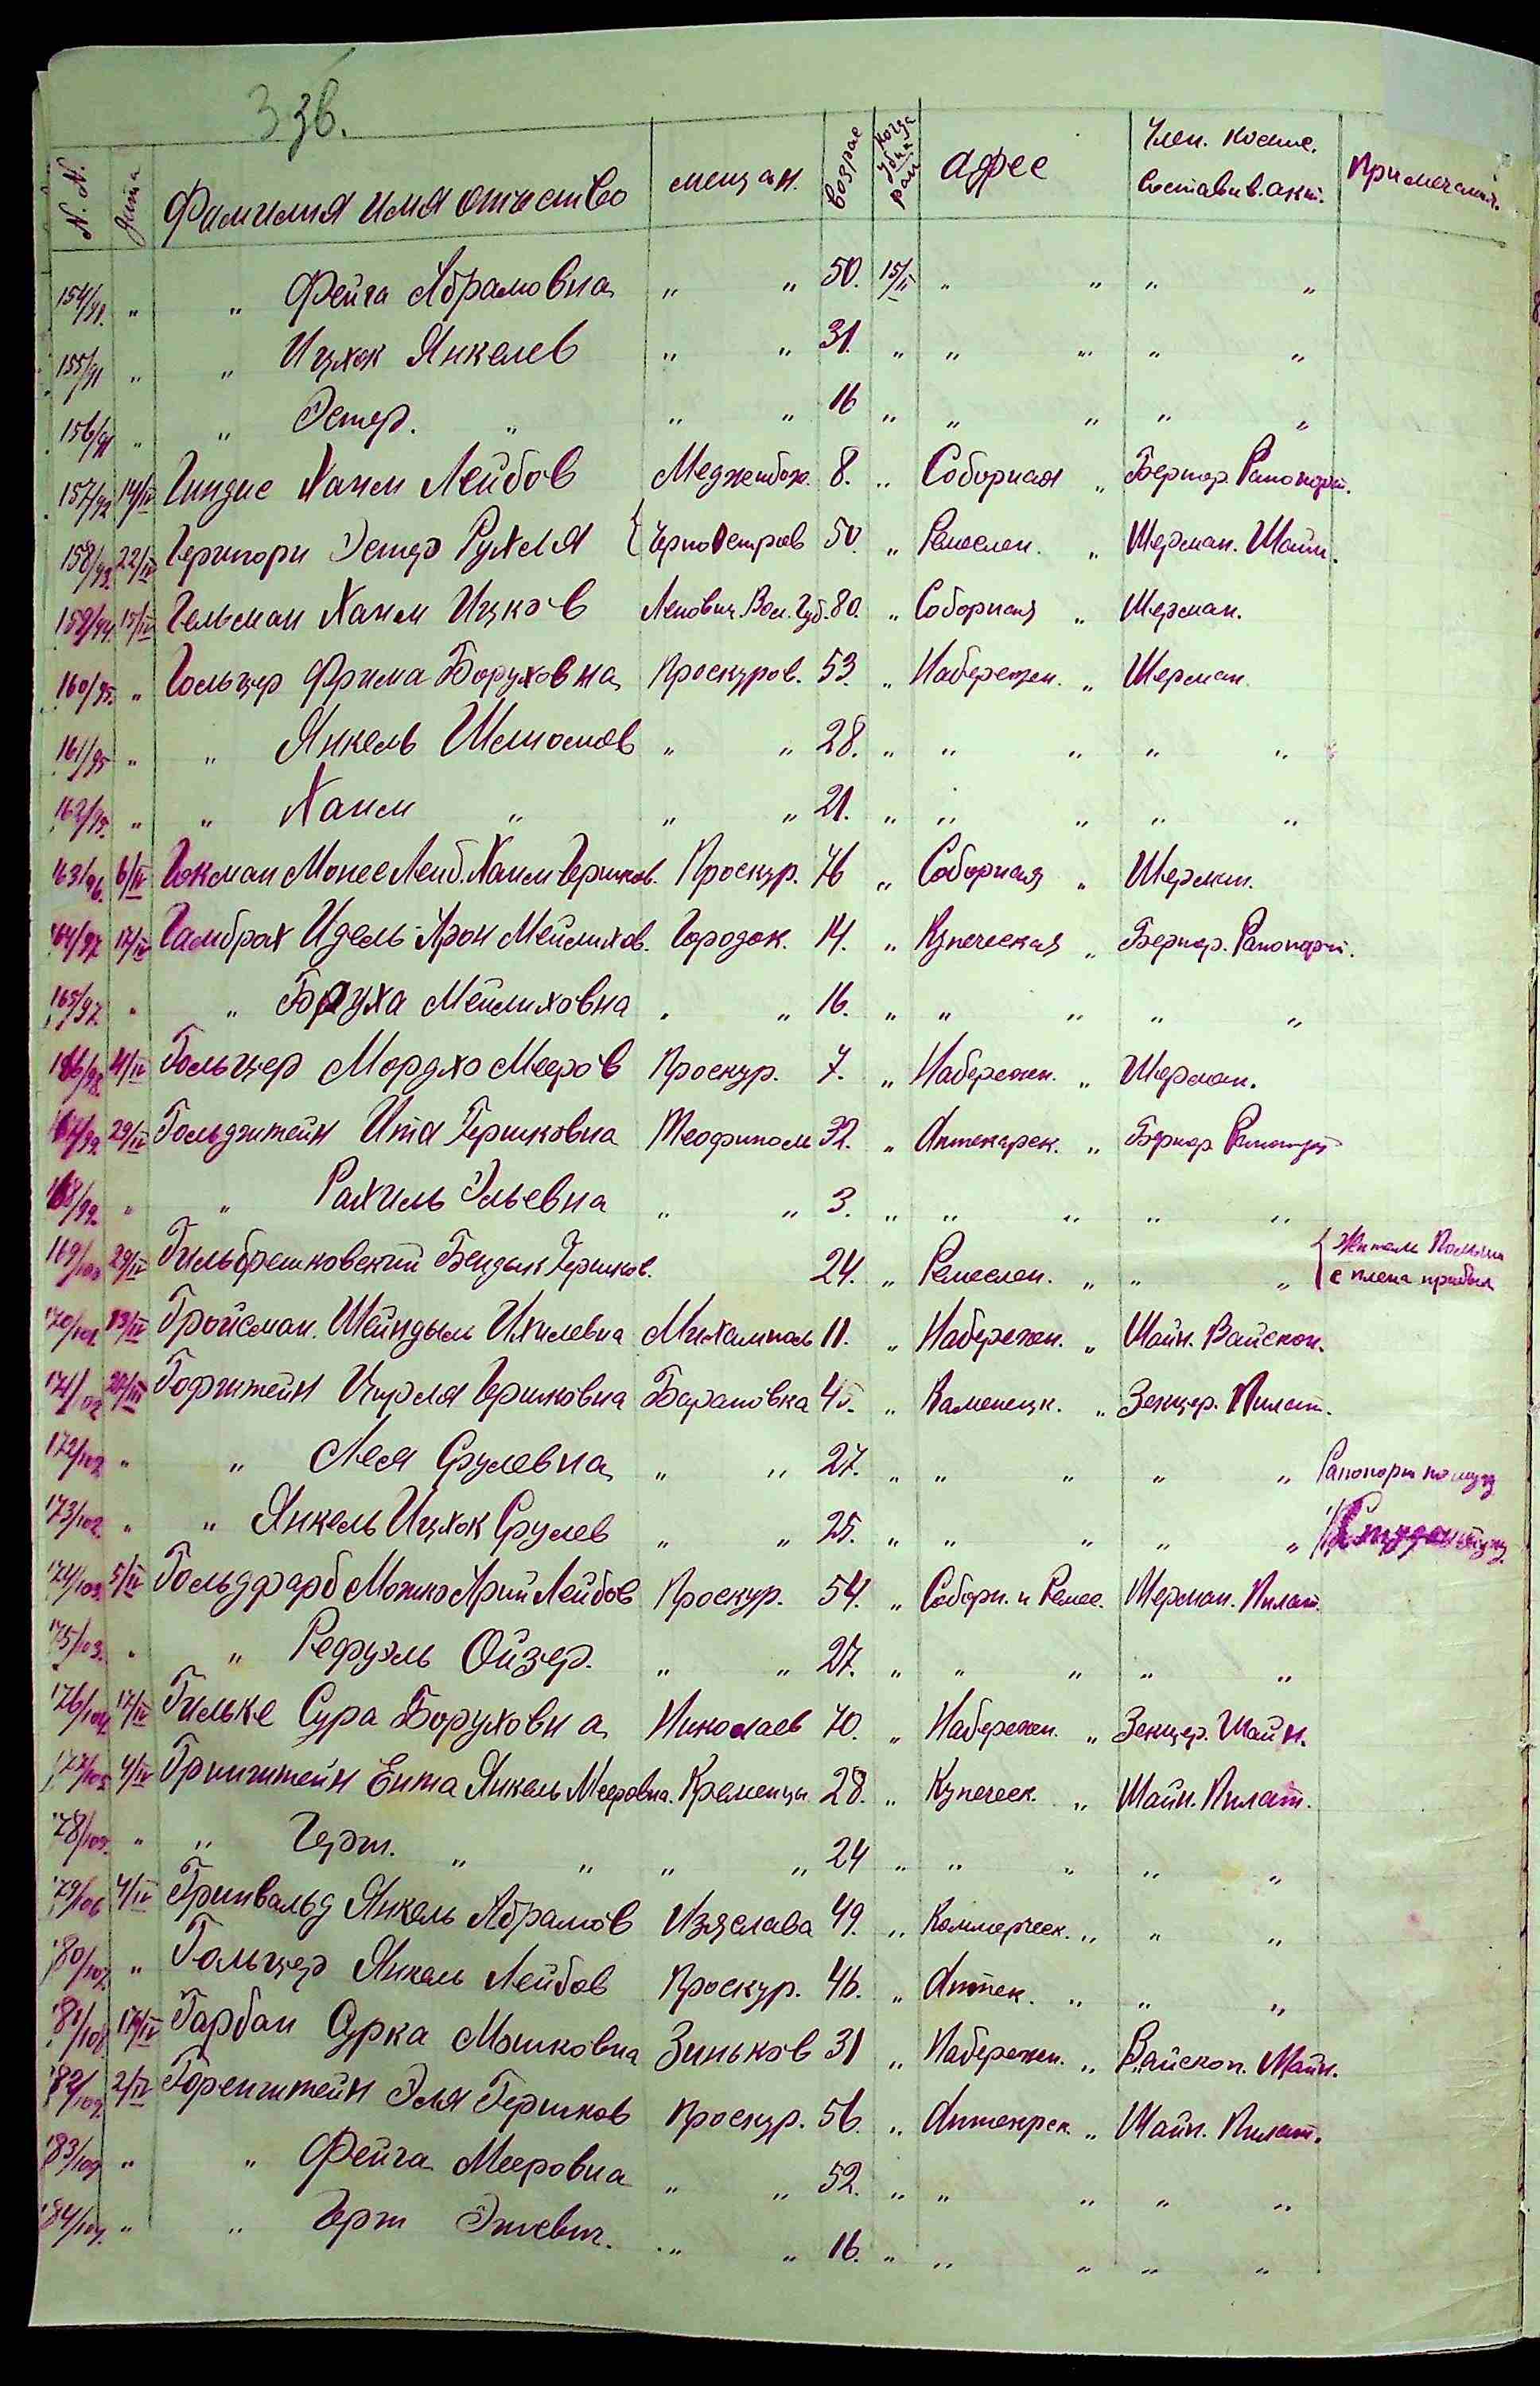 3 зв.
N.N. дата Фамилия имя отчество мещан. возрас Когда убит ран адрес Член. комис. составив. акт. Примечания.
154/91. " " Фейга Абрамовна " " 50. 15/II " " " "
155/91 " " Ицхок Янкелев " " 31. " " " " "
156/91 " " Эстер. " " " 16 " " " " "
157/92 14/IV Гиндис Хаим Лейбов Меджибож. 8. " Соборная " Бернор. Рапопорт.
158/93. 22/IV Герипорн Эстер Рухля { Черноостров 50. " Ремеслен. " Шерман. Шайн.
159/94. 15/IV Гельман Хаим Ицков Вол. Губ. 80. " Соборная " Шерман.
160/95. " Гольцер Фрима Боруховна Проскуров. 53. " Набережн. " Шерман.
161/95 " " Янкель Шлиомов " " 28. " " " " "
162/95. " " Хаим " " " 21. " " " " "
163/96. 6/IV Гокман Моисе Лейб. Хаим Гершков. Проскур. 76 " Соборная " Шерман.
164/97 17/IV Гамбрах Идель-Арон Мейлихов. Городок. 14. " Купеческая " Бернор. Рапопорт.
165/97. " " Бруха Мейлиховна " " 16. " " " " "
166/98. 4/IV Гольцер Мордхо Мееров Проскур. 7. " Набережн. " Шерман.
167/99. 29/IV Гольдштейн Ита Гершковна Теофиполь 32. " Аптекарск. " Бернор. Рапопорт
168/99. " " Рахиль Эльевна " " 3. " " " " "
169/100 29/IV Гильбрешковский Бендык Гершков. 24. " Ремеслен. " " " { Житель Польши с плена прибыл
170/101. 13/IV Гройсман. Шейндыль Ихилевна Михамполь 11. " Набережн. " Шайн. Вайскоп.
171/102 24/III Горштейн Цирля Гершковна Барановка 45. " Каменецк. " Зекцер. Пилат.
172/102 " " Лея Срулевна " " 27. " " " " " Рапопорт по мужу
173/102. " " Янкель Ицхок Срулев " " 25. " " " " " Студент
174/103. 5/IV Гольдфарб Мошко Арий Лейбов Проскур. 54. " Соборн. и Ремес. Шерман. Пилат.
175/103. " " Рефуэль Ойзер. " " 27. " " " " "
176/104. 17/IV Гильке Сура Боруховна Николаев 70. " Набережн. " Зекцер. Шайн.
177/105. 4/IV Гринштейн Ента Янкель Мееровна. Кременцы 28. " Купеческ. " Шайн. Пилат.
178/105. " " Герш. " " " " 24 " " " " "
179/106 4/IV Гринвальд Янкель Абрамов Изяслава 49. " Коммерческ. " " "
180/107. " Гольцер Янкель Лейбов Проскур. 46. " Аптек. " " "
181/108. 17/IV Гарбан Сурка Мошковна Зиньков 31 " Набережн. " Вайскоп. Шайн.
182/109. 2/IV Горенштейн Эля Гершков Проскур. 56. " Аптекрск. " Шайн. Пилат.
183/109 " " Фейга Мееровна " " 52. " " " " "
184/109. " " Герш Элиевич. " " 16. " " " " "